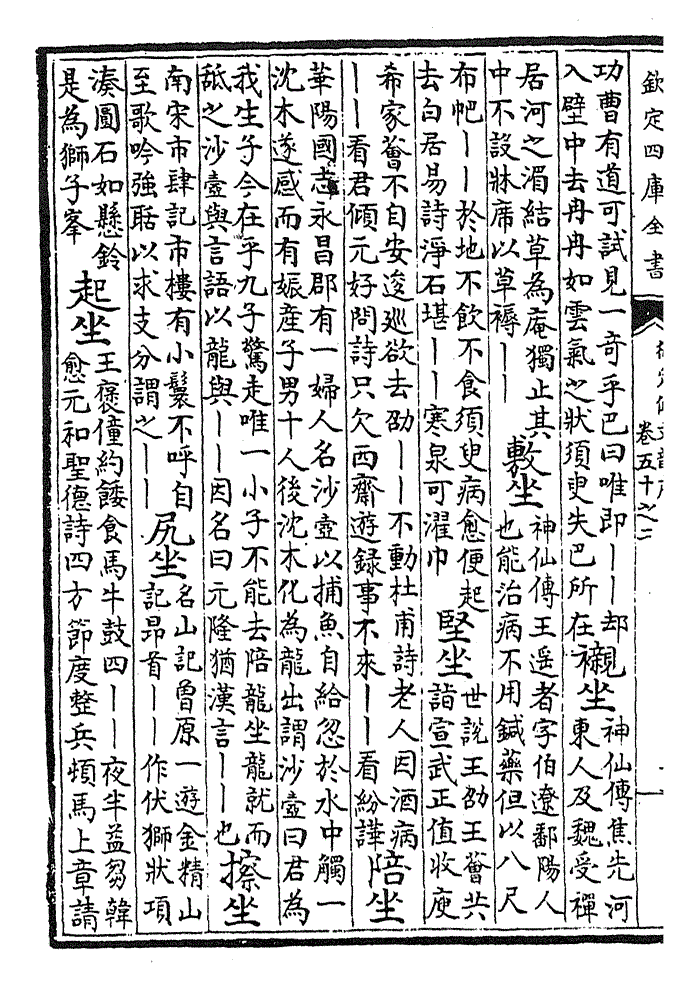 欽定四庫全書
卷五十之二
功曹有道可試見一奇乎巴曰唯即——却
入壁中去冉冉如雲氣之狀須臾失巴所在
襯坐
神仙傳焦先河
東人及魏受禪
居河之湄結草為庵獨止其
中不設牀席以草褥——
敷坐
神仙傳王遥者字伯遼鄱陽人
也能治病不用鍼藥但以八尺
布帊——於地不飲不食須臾病愈便起
去白居易詩淨石堪——寒泉可濯巾
堅坐
世說王劭王薈共
詣宣武正值收庾
希家薈不自安逡巡欲去劭——不動杜甫詩老人因酒病
——看君傾元好問詩只欠西齋遊録事不來——看紛譁
陪坐
華陽國志永昌郡有一婦人名沙壺以捕魚自給忽於水中觸一
沈木遂感而有娠産子男十人後沈木化為龍出謂沙壺曰君為
我生子今在乎九子驚走唯一小子不能去陪龍坐龍就而
舐之沙壺與言語以龍與——因名曰元隆猶漢言——也
擦坐
南宋市肆記市樓有小鬟不呼自
至歌吟強聒以求支分謂之——
尻坐
名山記曾原一遊金精山
記昂首——作伏獅狀項
湊圓石如懸鈴
是為獅子峯
起坐
王褒僮約餧食馬牛鼓四——夜半益芻韓
愈元和聖德詩四方節度整兵頓馬上章請